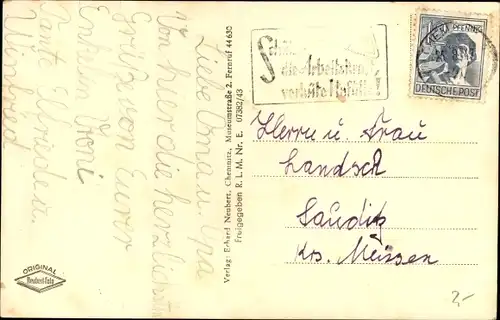 Liebe Oma u. Opa
Von hier die herzlichsten
Grüße von Eurer
Enkelin
Vroni
Tante Elsriese u.
Winfried
Verlag: Erhard Neubert, Chemnitz, Museumstraße 2, Fernruf 44630
Freigegeben R. L. M. Nr. E. 07382/43
ORIGINAL
Neubert-Foto
die Arbeitskraft,
verhüte Unfälle!
PFENNIG
DEUTSCHE POST
Herrn u. Frau
Landsch
Sauditz
Krs. Meissen
2,-